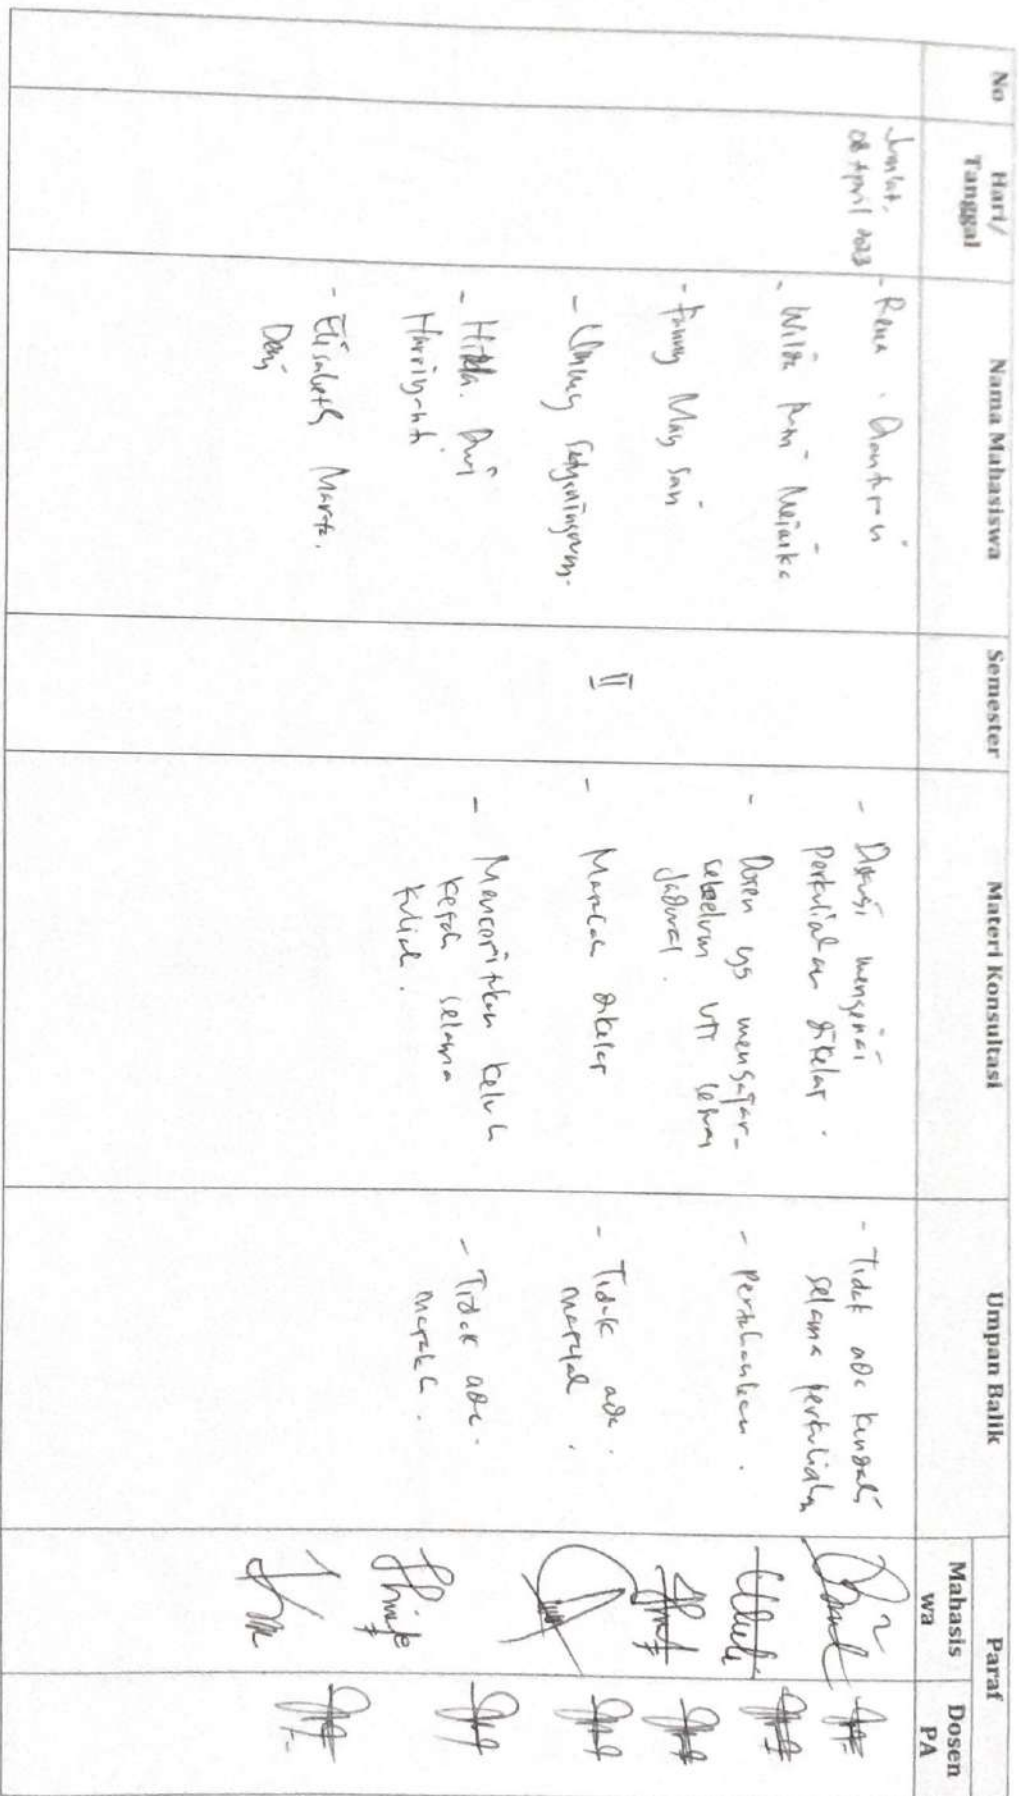 No
Hari/
Tanggal
Nama Mahasiswa
Semester
Materi Konsultasi
Umpan Balik
Paraf
Mahasis
wa
Dosen
PA
08 April 2023
- Rena
- Wilda
- Fanny May Sari
- Hilda. Dwi
Harriyanti
- Elisabeth Marta.
Dewi
II
- Diskusi mengenai
Perkuliahan dikelas.
- Dosen yg mengajar-
sebelum UTS sesuai
Jadwal.
- Masalah dikelas
- Menceritakan keluh
kesah selama
kuliah.
- Tidak ada kendala
selama perkuliahan
- Pertahankan.
- Tidak ada.
masalah.
- Tidak ada.
masalah.